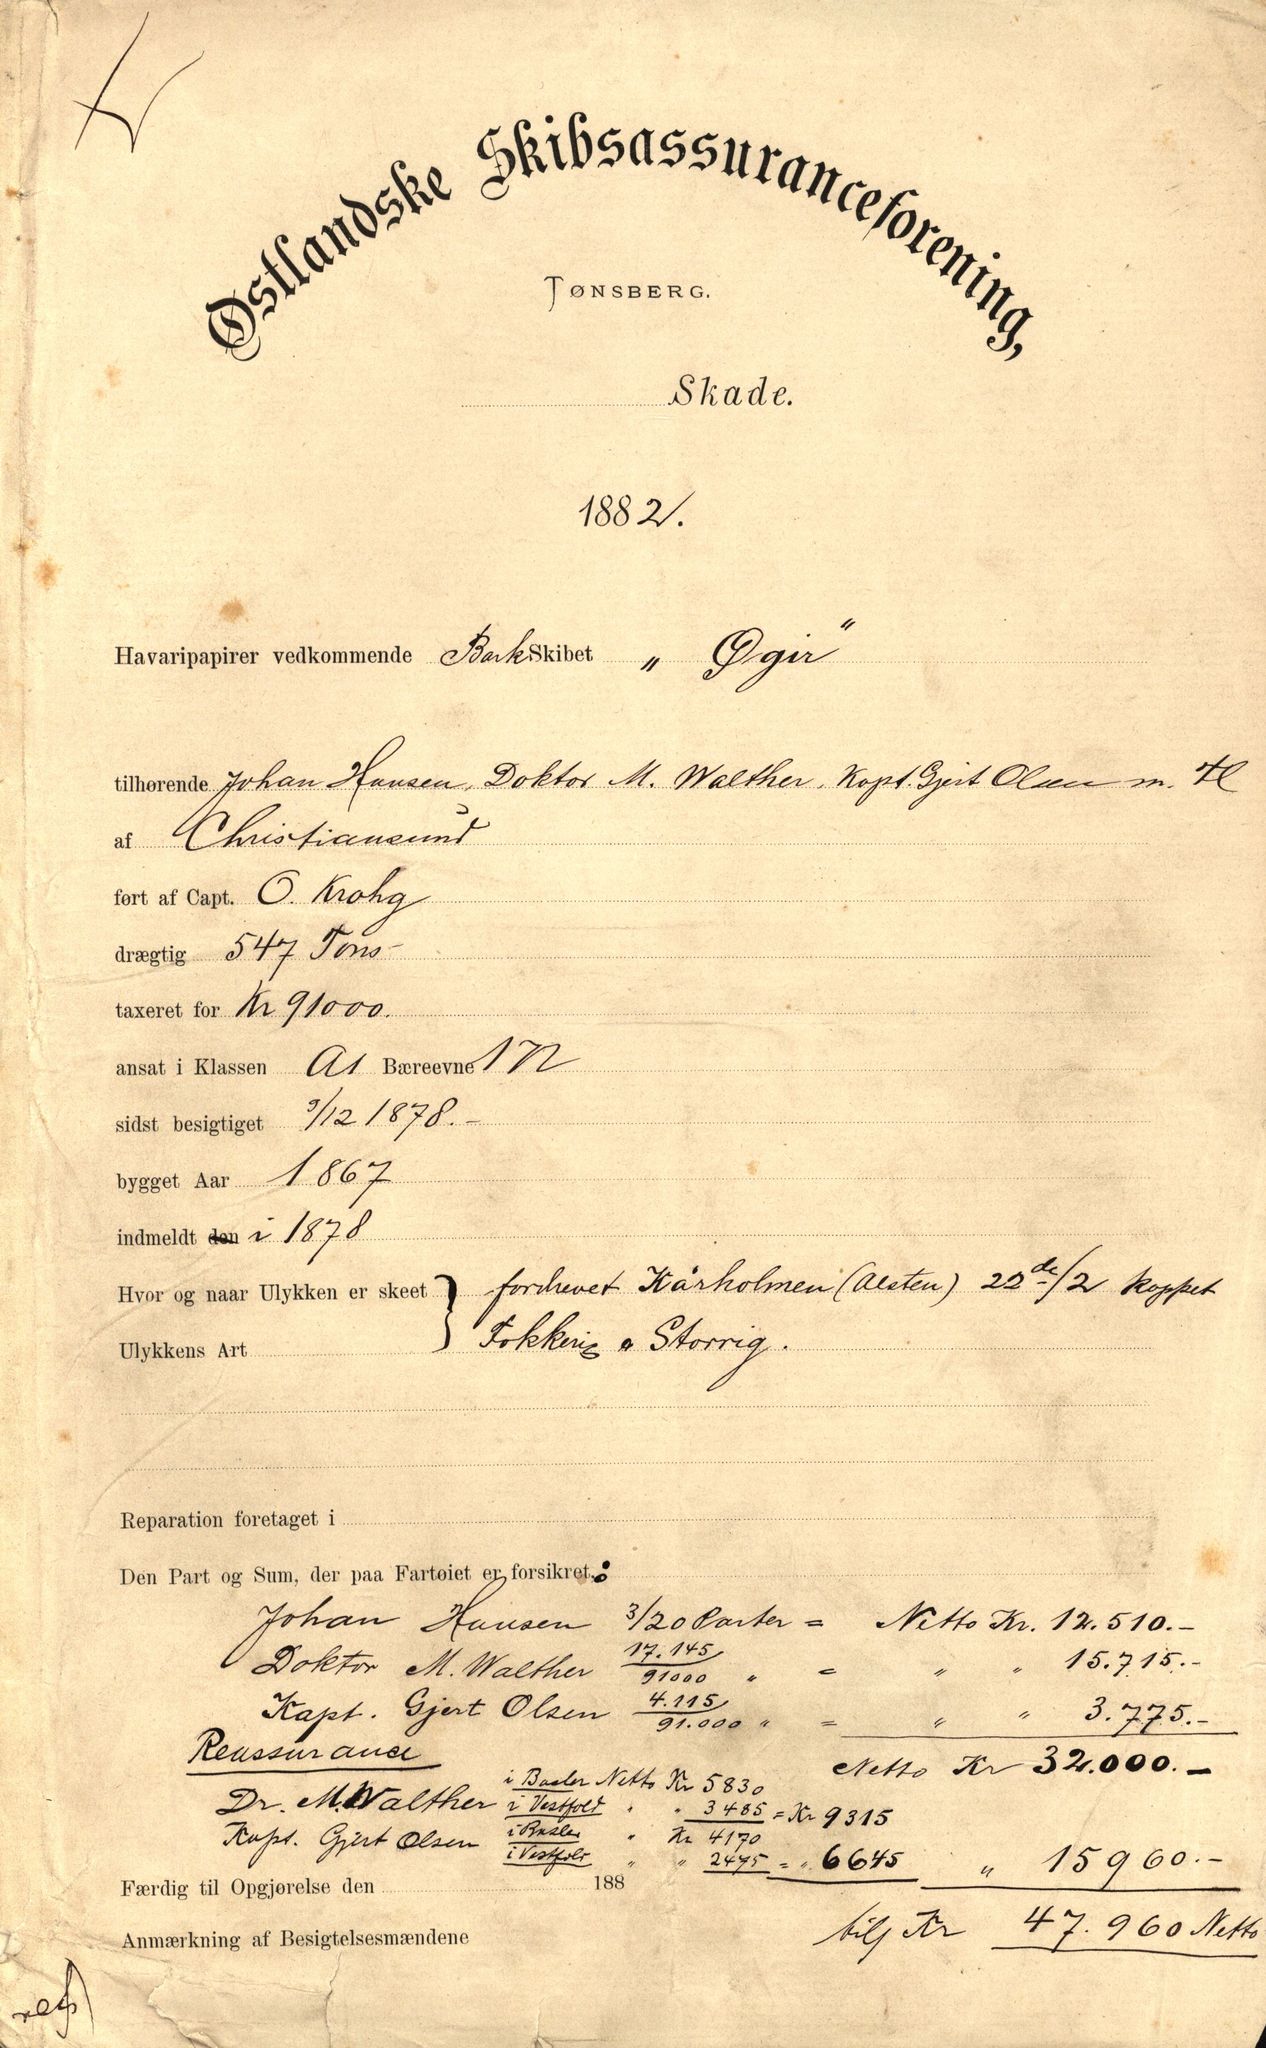 Østlandske Skibsassuranceforening,
TØNSBERG.
Skade.
1882.
Havaripapirer vedkommende Bark Skibet „ Øgir "
tilhørende Johan Hansen, Doktor M. Walther, Kapt. Gjert Olsen m. fl
af Christiansund
ført af Capt. O. Krohg
drægtig 547 Tons
taxeret for Kr 91000.
ansat i Klassen A1 Bæreevne
sidst besigtiget 9/12 1878.-
bygget Aar 1867
indmeldt den i 1878
Hvor og naar Ulykken er skeet } fordrevet Kårholmen (Alsten) 22de/2 kappet
Ulykkens Art Fokkerig & Storrig.
Reparation foretaget i
Den Part og Sum, der paa Fartøiet er forsikret:
Johan Hansen 3/20 Parter = Netto Kr. 12.510.-
Doktor M. Walther 17.145/91000 " = " " 15.715.-
Kapt. Gjert Olsen 4.115/91.000 " = " " 3.775.-
Reassurance Netto Kr 32.000.-
Dr. M. Walther i Basler Netto Kr 5830
i Vestfold " " 3485 = Kr 9315
Kapt. Gjert Olsen i Basler " Kr 4170
i Vestfold " " 2475 = " 6645 " 15960.-
Færdig til Opgjørelse den 188
tils Kr 47.960 Netto
Anmærkning af Besigtelsesmændene